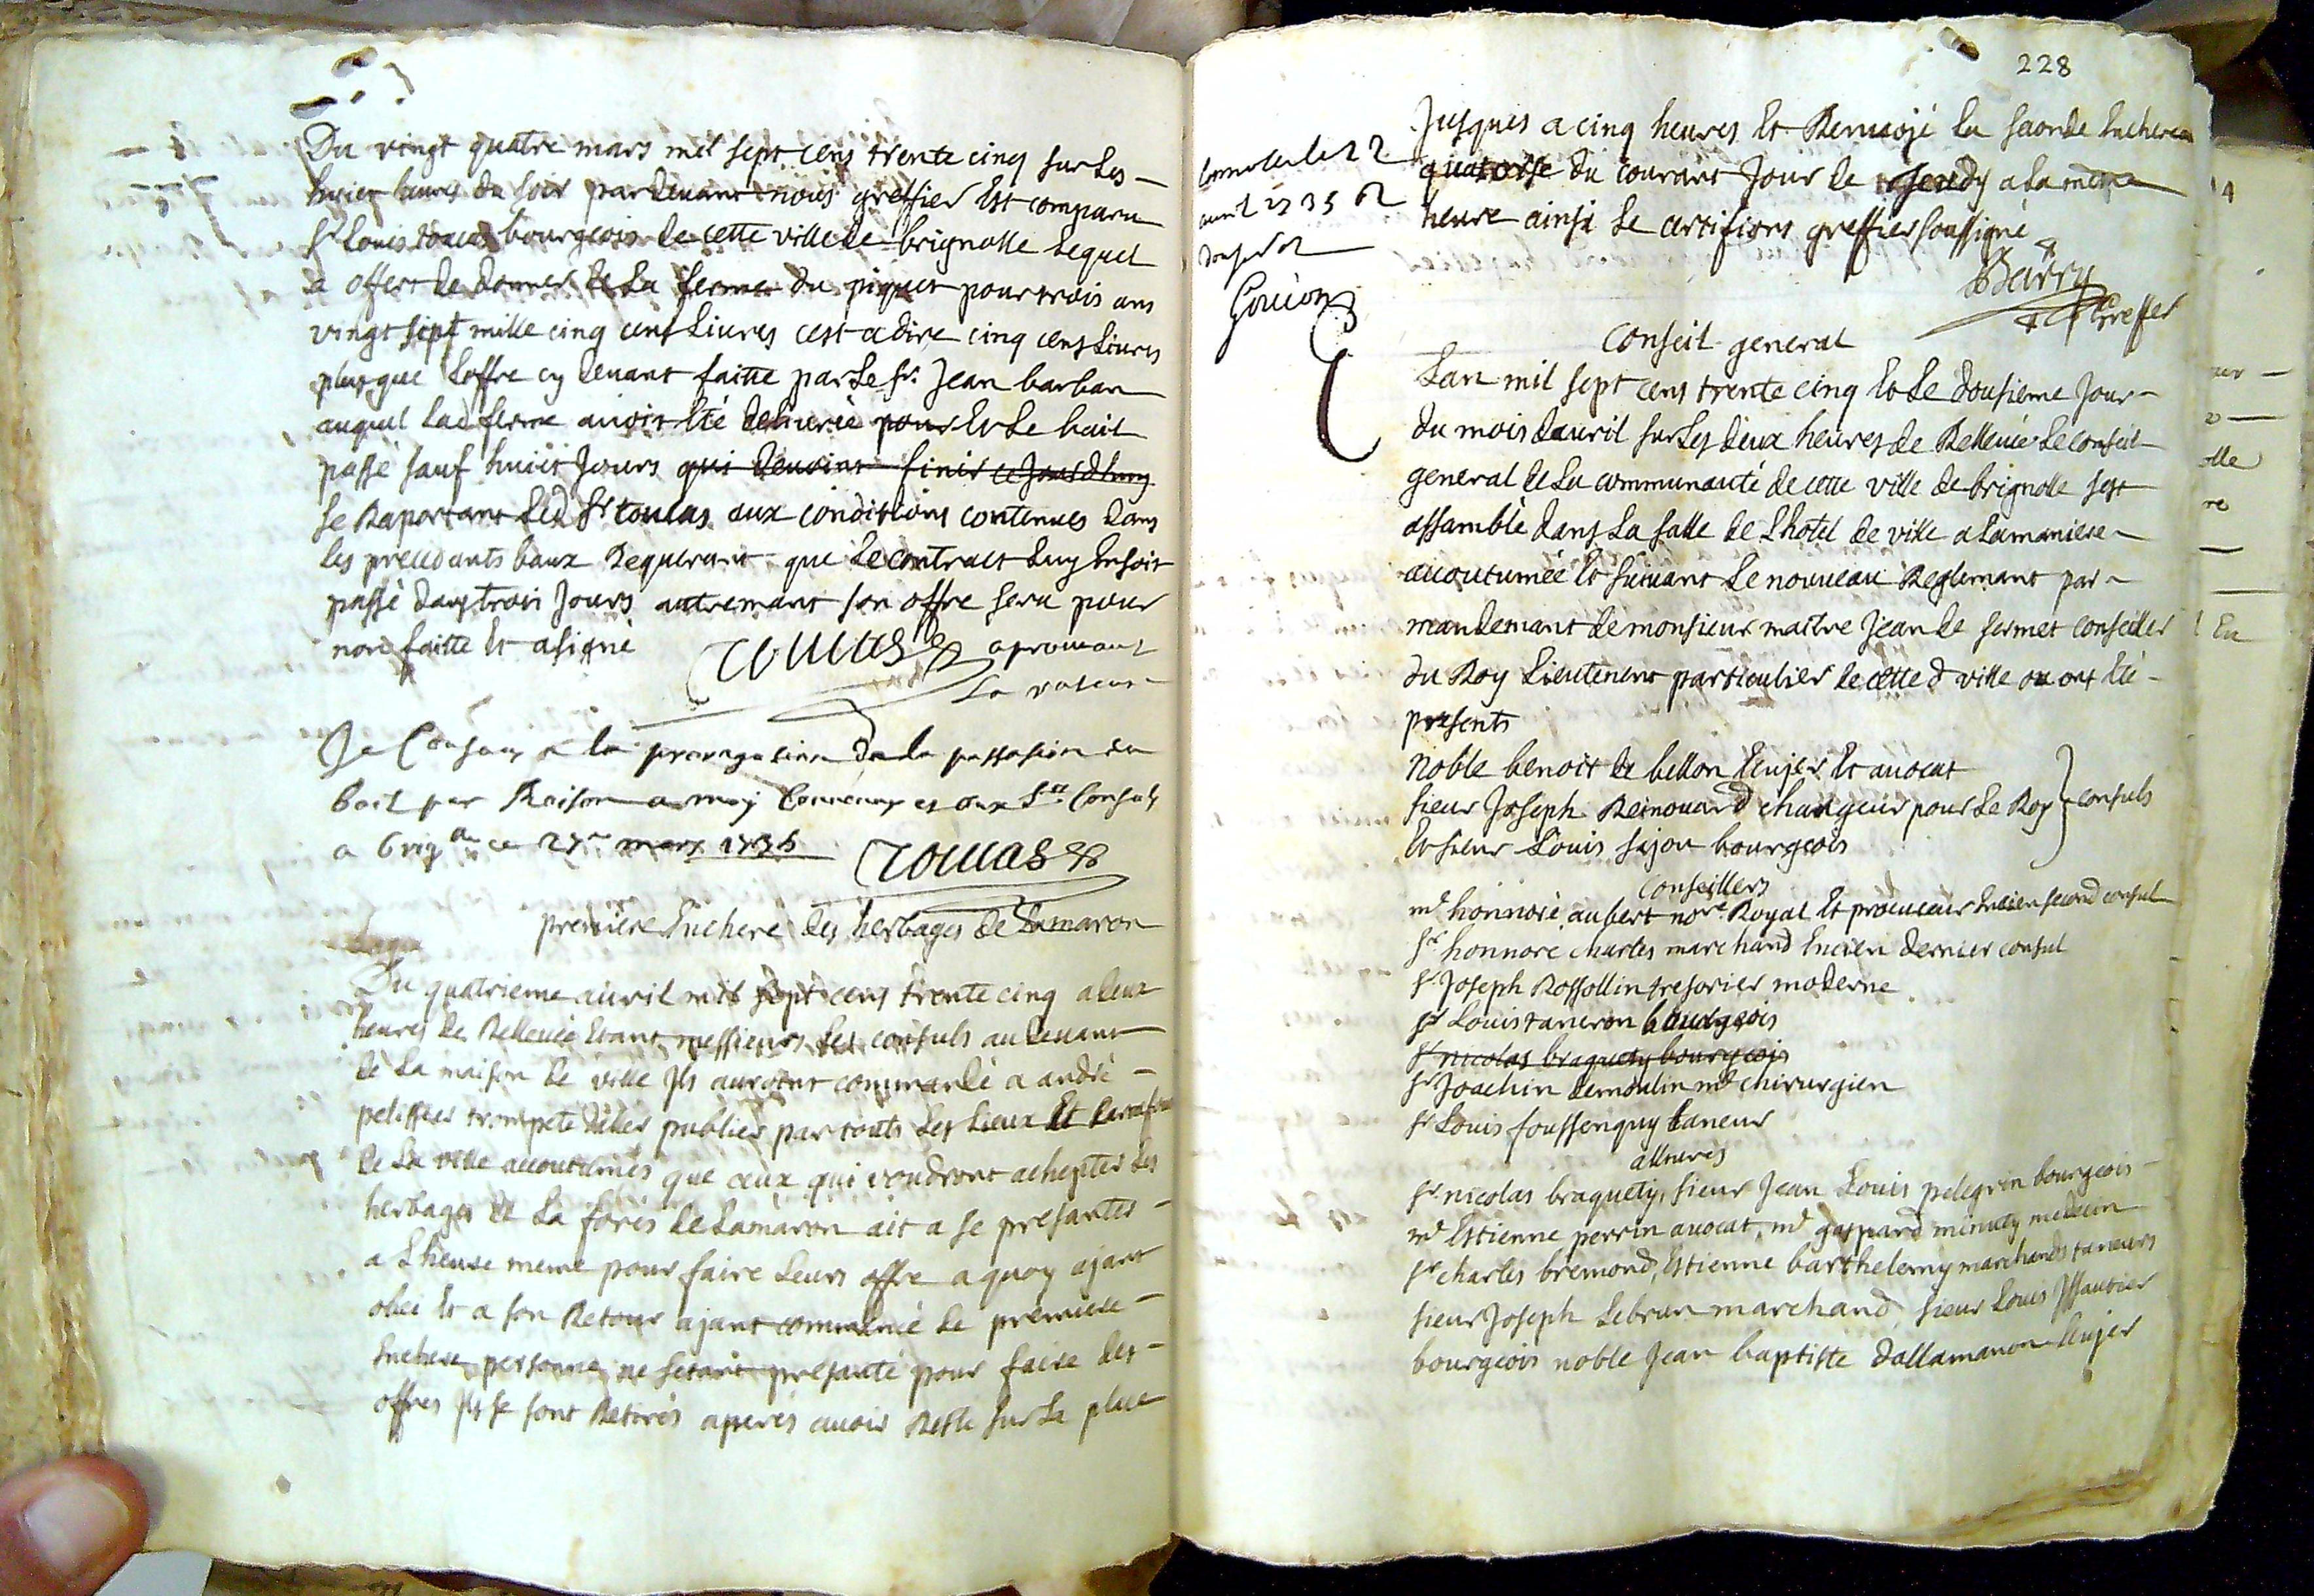 Du vingt quatre mars mil sept cens trente cinq sur les
huict heures du soir pardevant nous greffier est comparu
Sr Louis toucas bourgeois de cette ville de brignolle lequel
a offert de donner de la ferme du piquet pour trois ans
vingt sept mille cinq cens livres cest a dire cinq cens livres
plus que loffre cy devant faitte par le sr. Jean barban
auquel lad ferme avoit été delivrée pour et le bail
passé sauf huict jours qui devoint finir ce jourdhuy
se raportant led Sr toucas aux conditions contenues dans
les precedants baux requerant que le contract luy en soit
passé dans trois jours autremant son offre sera pour
non faitte et a signé
Toucas aprouvant
la rature
Je Consans a la prorogation de la passation du
bail par Raison a moy Connues et aux Srs Consuls
a brig ce 27 mars 1735
Toucas
premiere Enchere des herbages de Lamaron
Du quatrieme avril mil sept cens trente cinq a deux
heures de Rellevée etant messieurs les consuls au devant
de la maison de ville ils auroint commandé a andré
pelissier trompete daller publier par touts les lieux et
de la ville accoutumés que ceux qui voudront achepter les
herbages de la forés de Lamaron ait a se presanter
a lheure meme pour faire leurs offre a quoy ajant
obei et a son Retour ajant commancé le premiere
Enchere personne ne setant presanté pour faire des
offres ils se sont Retirés aperés avoir Resté sur la place
228
Jusques a cinq heures et Renvojé la seconde Enchere au
quatorse du courant jour de jeudy a la meme
heure ainsi le certifions greffier soussigné
Barry
Greffier
avril 1735
Gouion
Conseil general
Lan mil sept cens trente cinq et le dousieme jour
du mois davril sur les deux heures de Rellevée le conseil
general de la communauté de cette ville de brignolle sest
assamblé dans la salle de Lhotel de ville a la maniere
accoutumée et suivant le nouveau Reglemant par
mandemant de monsieur maitre Jean de sermet conseiller
du Roy Lieutenent particulier de cette d ville ou ont été
presents
Noble benoit de bellon Eujer et avocat
sieur Joseph Reinouard changeur pour le Roy consuls
Et sieur Louis sajou bourgeois
Conseillers
me honnoré aubert nore Royal et procureur Encien second consul
Sr honnore charles marchand Encien dernier consul
Sr Joseph Rossollin tresorier moderne
Sr Louis taneron bourgeois
Sr nicolas braquety bourgeois
Sr Joachin demoulin me chirurgien
Sr Louis foussenquy taneur
allivrés
Sr nicolas braquety, sieur Jean Louis pelegrin bourgeois
me Estienne perrin avocat, me gaspard minuty medecin
Sr charles bremond, Estienne barthelemy marchands taneurs
sieur Joseph Lebrun marchand sieur Louis Issautier
bourgeois noble Jean baptiste dallamanon Eujer